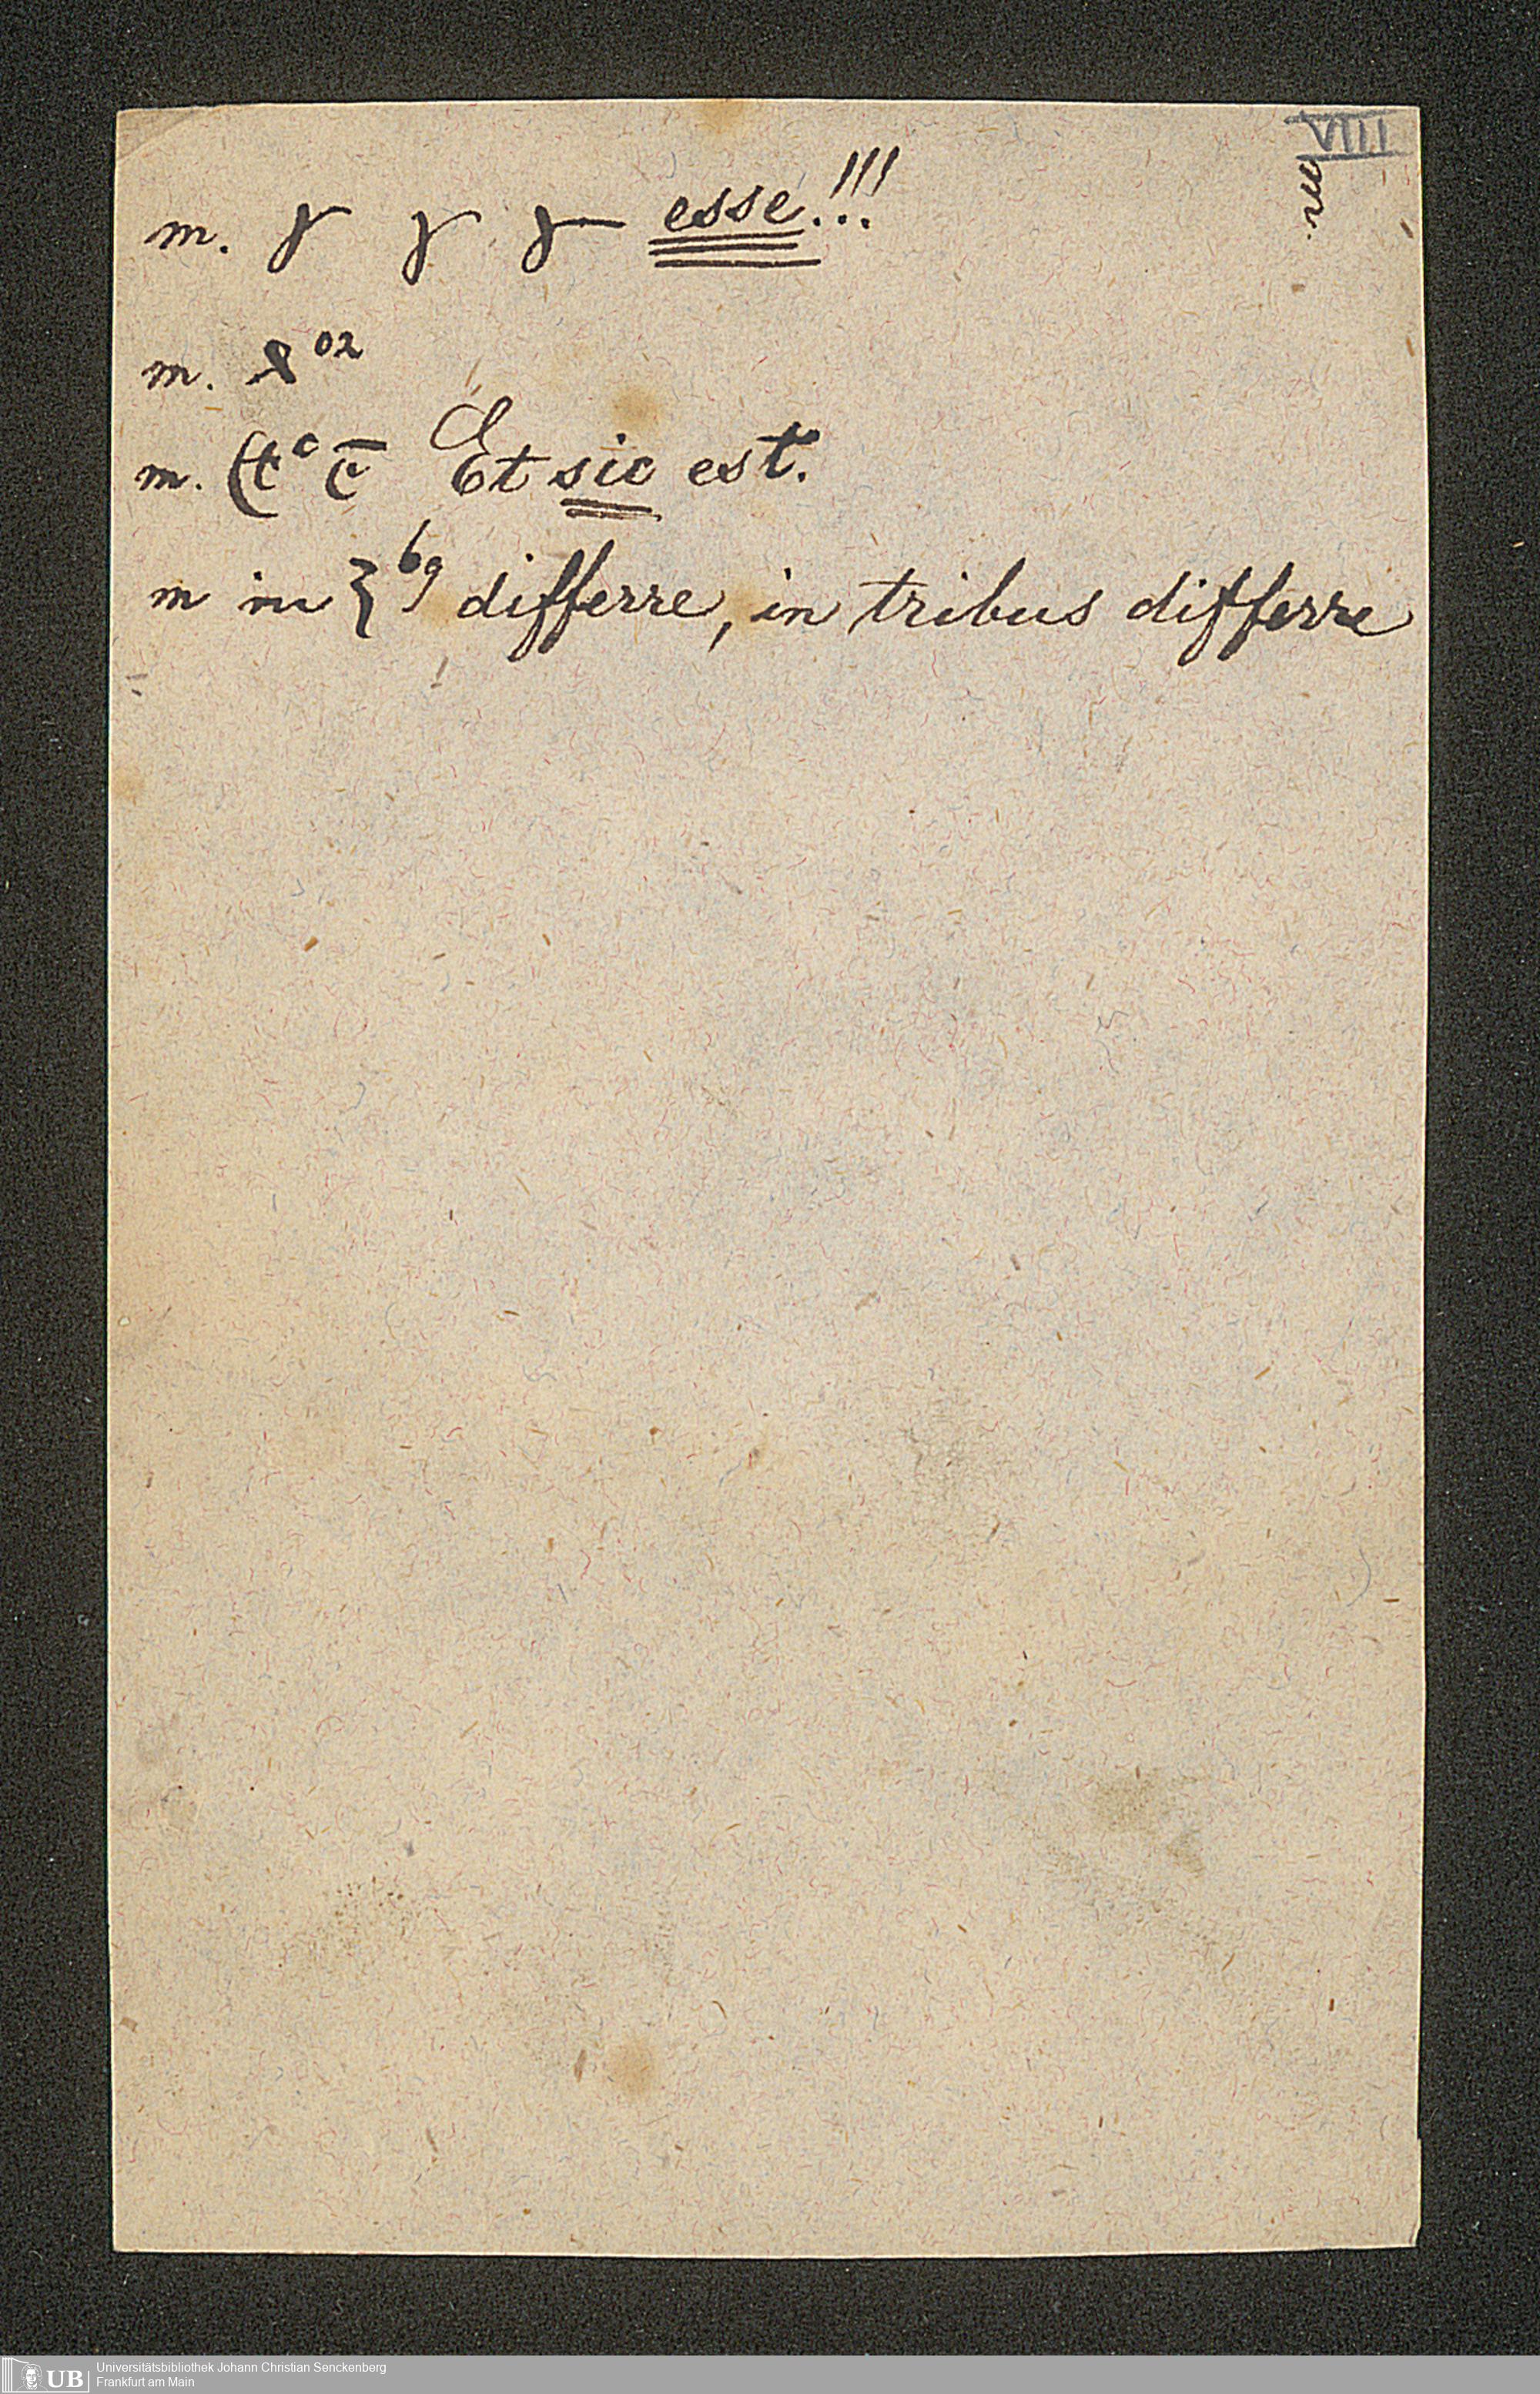 VIII
m.
m. esse!!!
m.
m. Et sic est.
m in differre, in tribus differre
UB Universitätsbibliothek Johann Christian Senckenberg
Frankfurt am Main